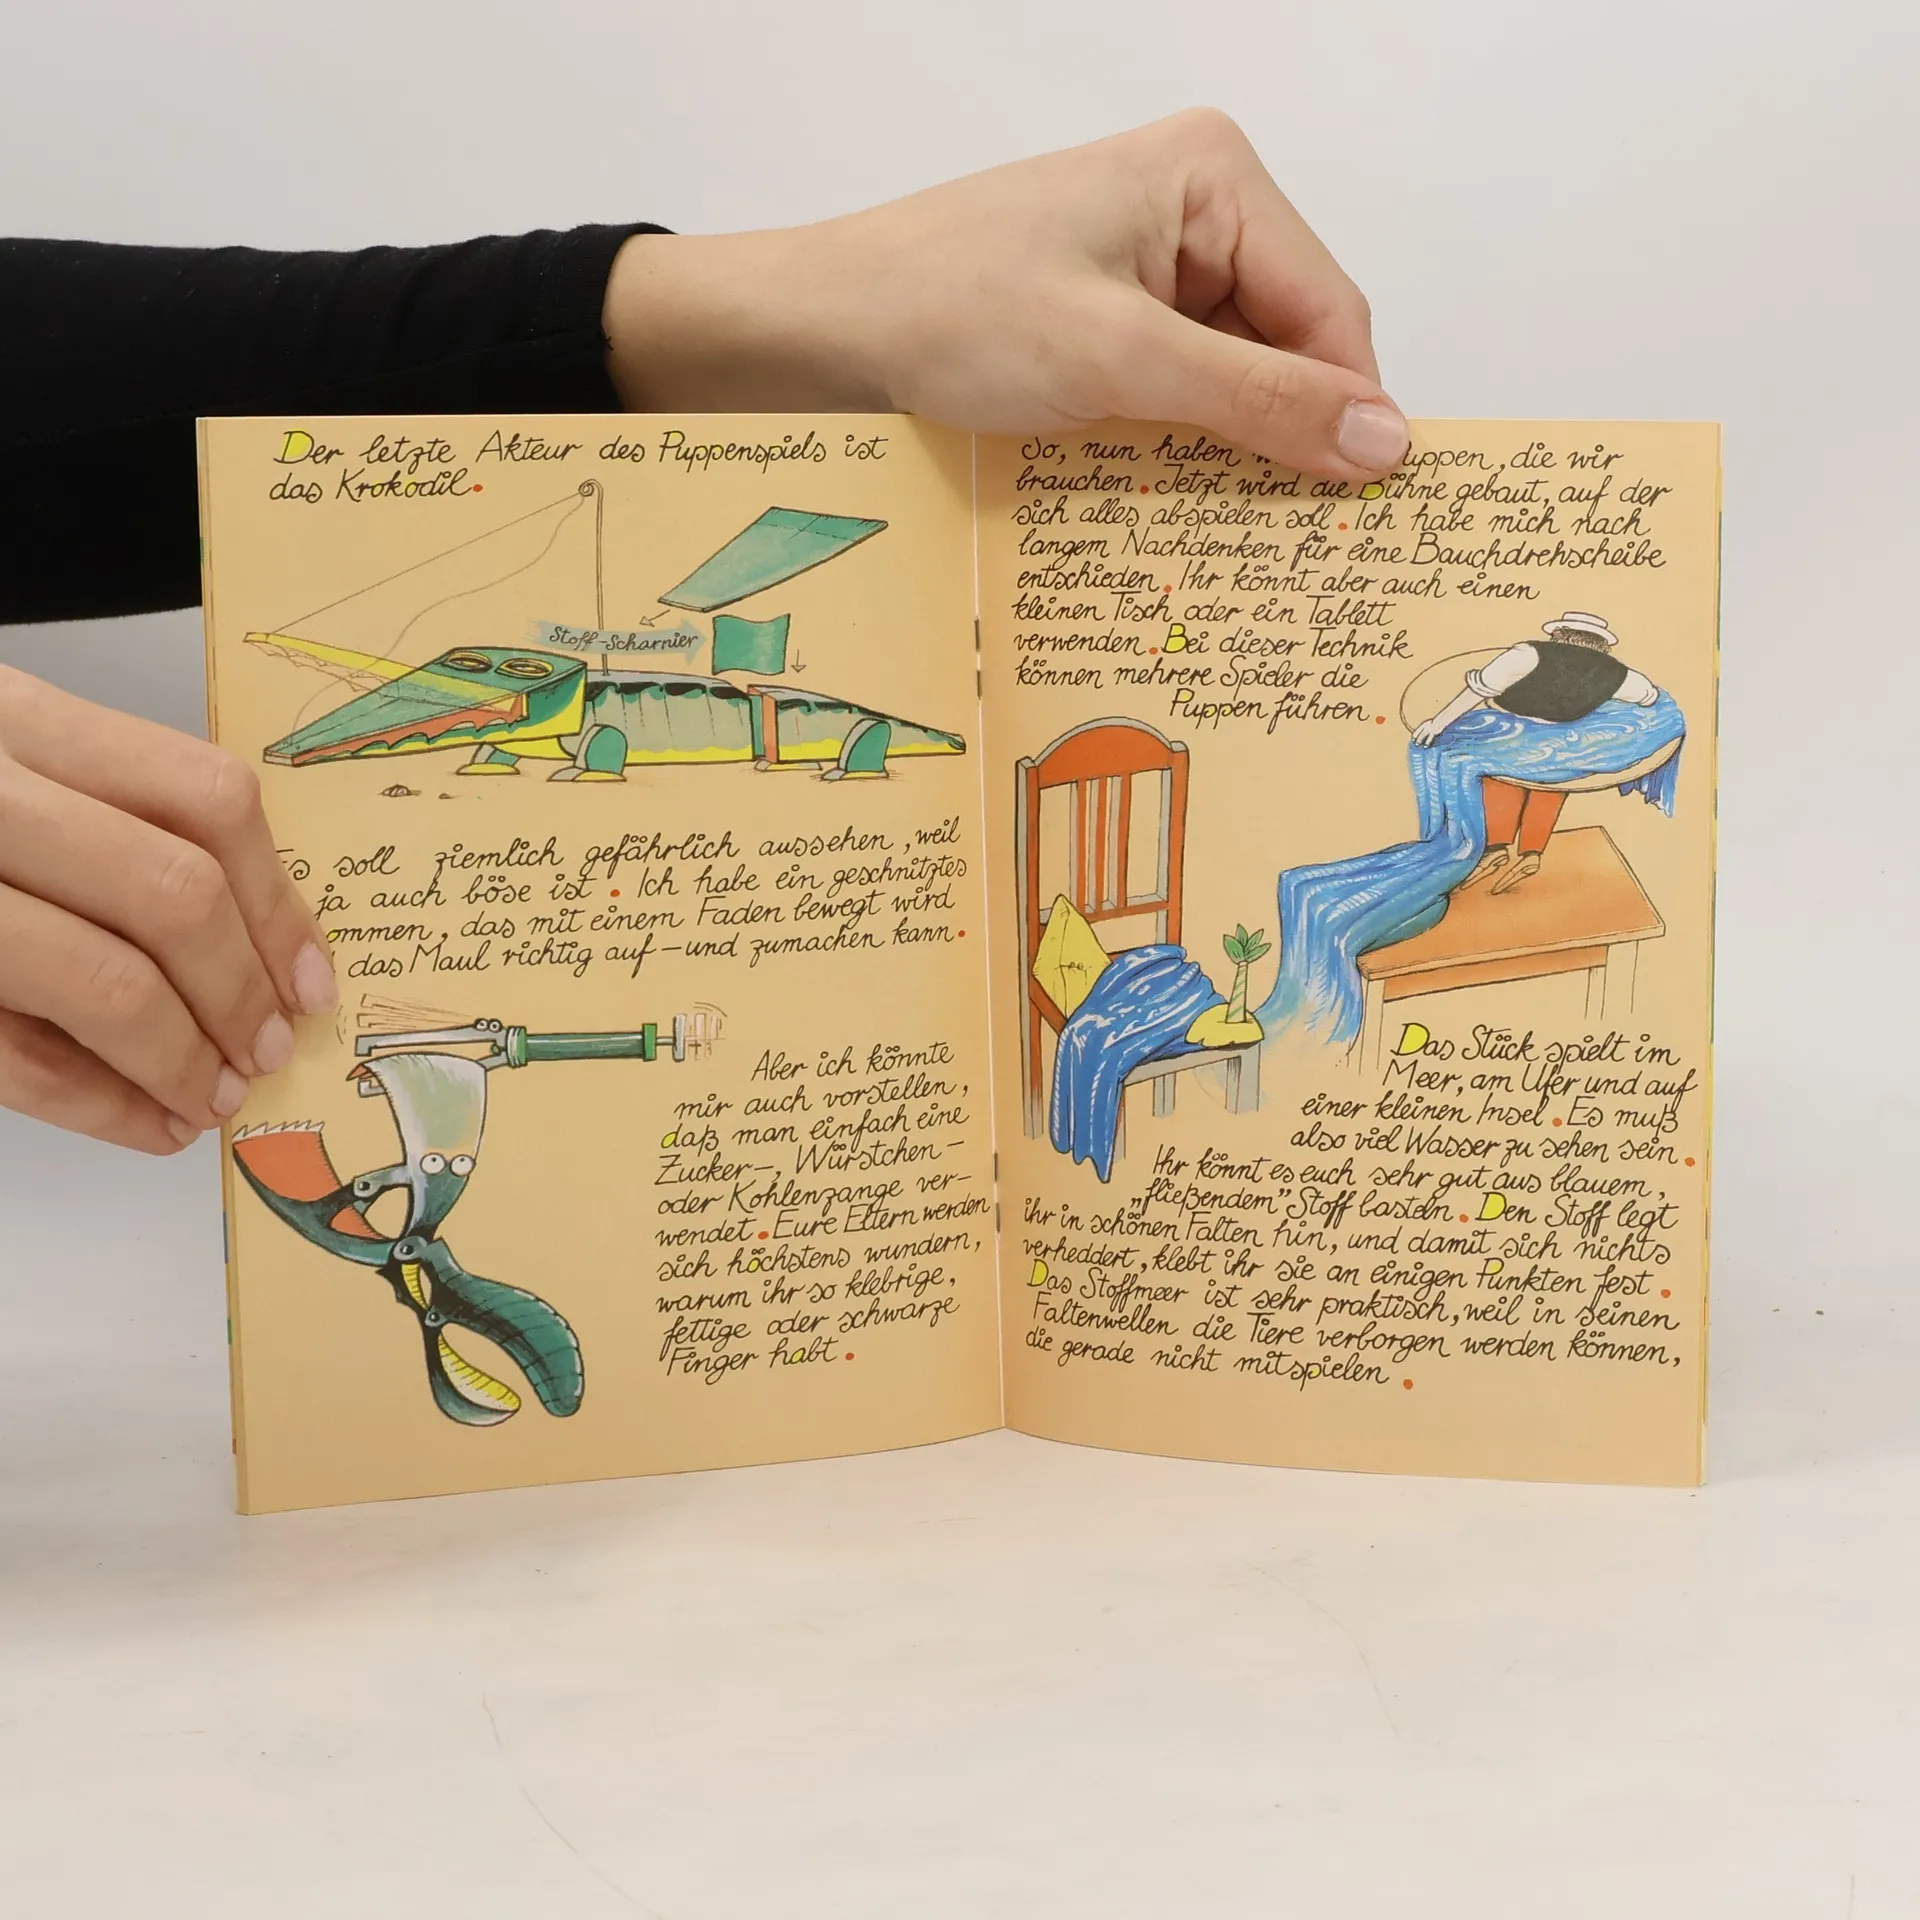 Der letzte Akteur des Puppenspiels ist
das Krokodil.
Stoff-Scharnier
soll ziemlich gefährlich aussehen, weil
ja auch böse ist. Ich habe ein geschnitztes
ommen, das mit einem Faden bewegt wird
das Maul richtig auf- und zumachen kann.
Aber ich könnte
mir auch vorstellen,
daß man einfach eine
Zucker-, Würstchen-
oder Kohlenzange ver-
wendet. Eure Eltern werden
sich höchstens wundern,
warum ihr so klebrige,
fettige oder schwarze
Finger habt.
So, nun haben uppen, die wir
brauchen. Jetzt wird die Bühne gebaut, auf der
sich alles abspielen soll. Ich habe mich nach
langem Nachdenken für eine Bauchdrehscheibe
entschieden. Ihr könnt aber auch einen
kleinen Tisch oder ein Tablett
verwenden. Bei dieser Technik
können mehrere Spieler die
Puppen führen.
Das Stück spielt im
Meer, am Ufer und auf
einer kleinen Insel. Es muß
also viel Wasser zu sehen sein.
Ihr könnt es euch sehr gut aus blauem,
„fließendem” Stoff basteln. Den Stoff legt
ihr in schönen Falten hin, und damit sich nichts
verheddert, klebt ihr sie an einigen Punkten fest.
Das Stoffmeer ist sehr praktisch, weil in seinen
Faltenwellen die Tiere verborgen werden können,
die gerade nicht mitspielen.